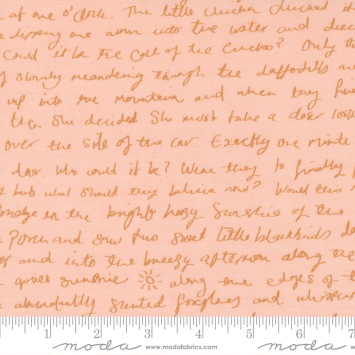 at one o'clock. The little chicken clucked it
dipping one worm into the water and
could it be the call of the Cuckoo? Only th
f slowly meandering through the daffodils a
up into the mountain and when they
then she decided she must take a closer look
over the side of the car. Exactly one minute
door. Who could it be? Were they to finally
but what should they believe now? Would this
bridge in the bright hazy Sunshine of the
Porch and saw two sweet little blackbirds
and into the breezy afternoon along the
quiet sunshine along the edges of t
abundantly scented foxgloves and whisper
1 2 3 4 5 6 7
moda www.modafabrics.com moda